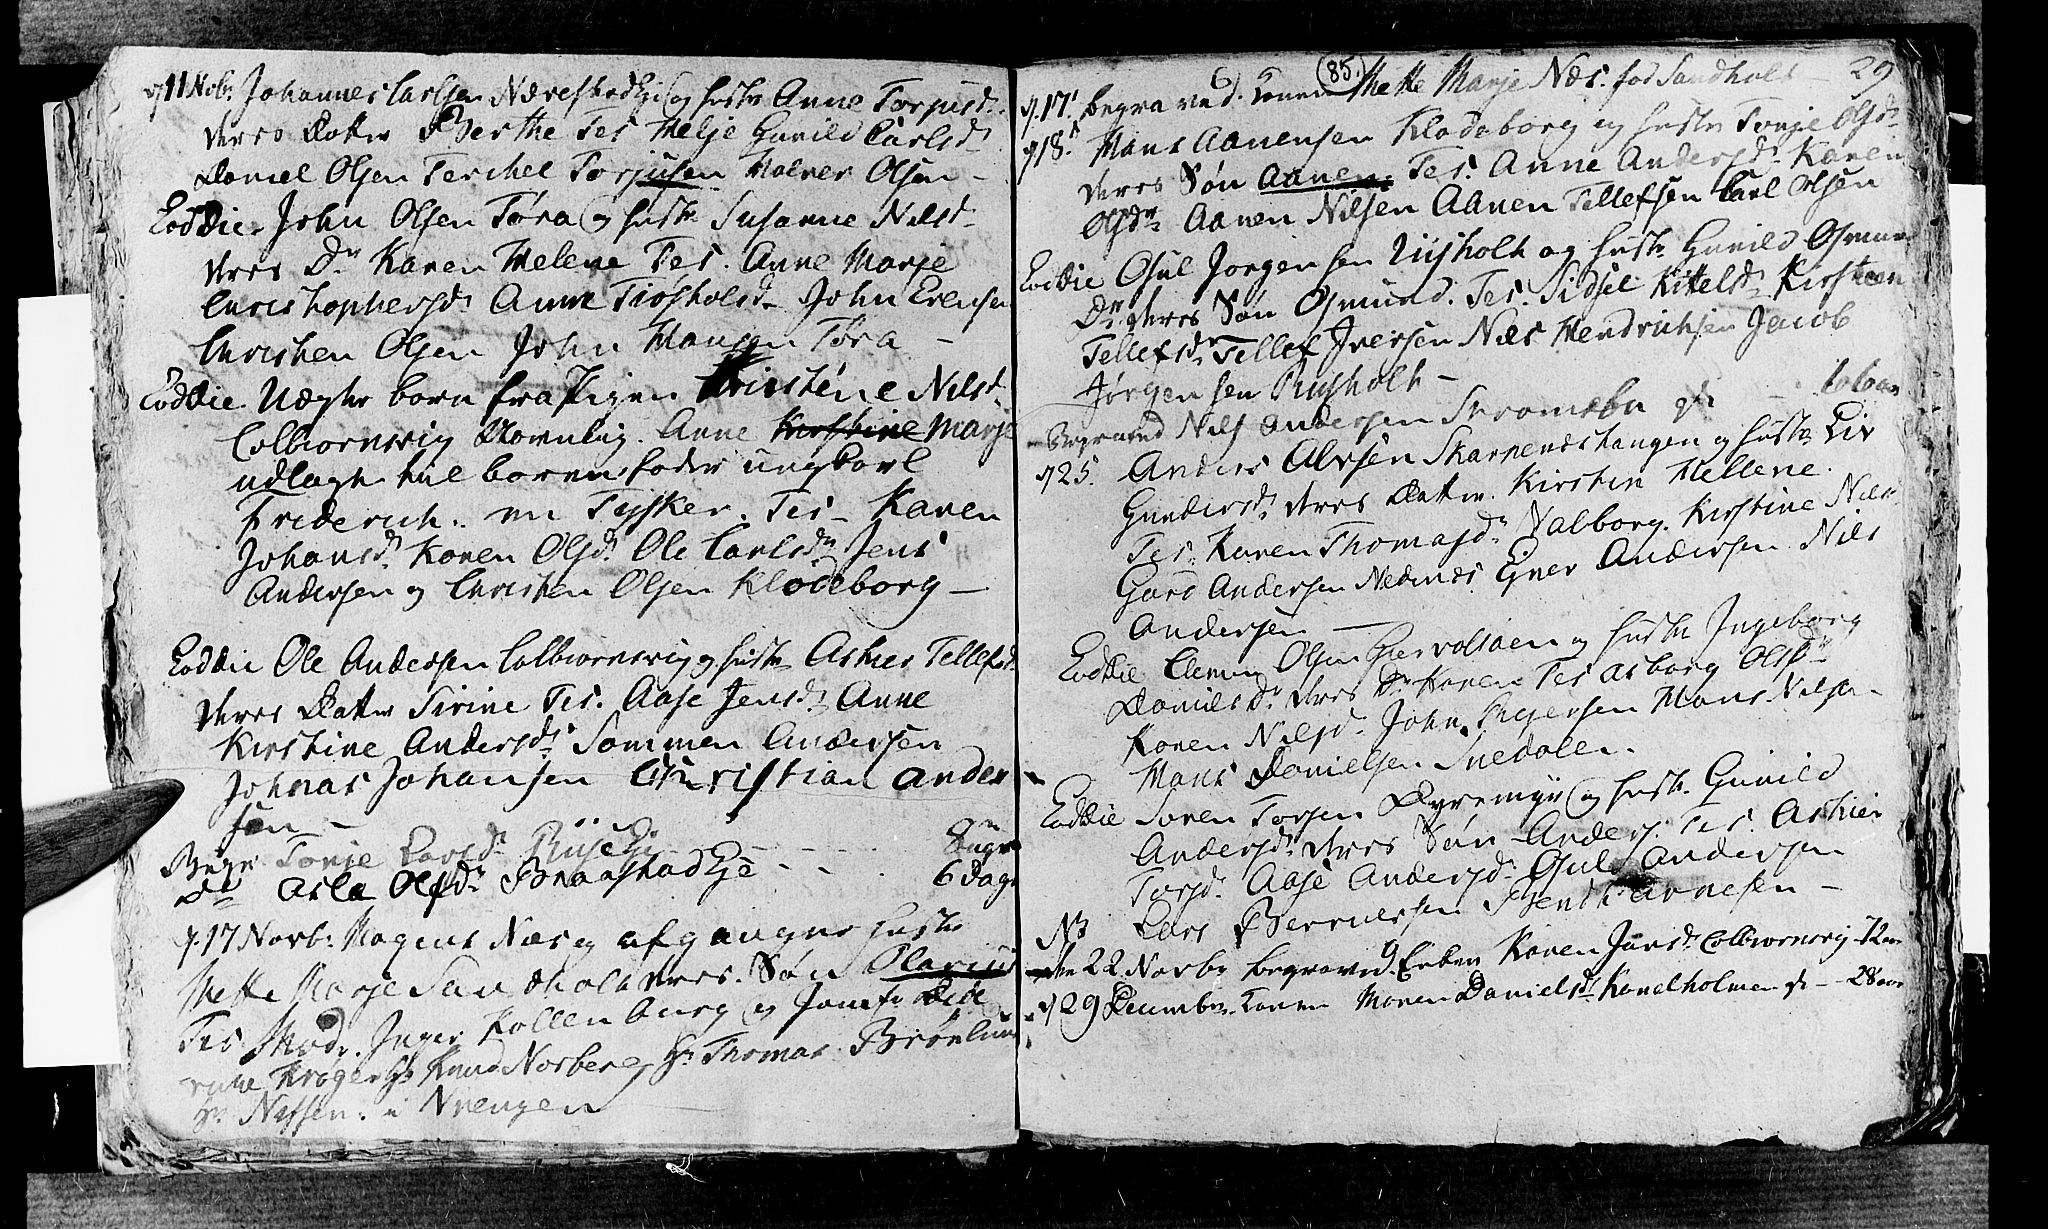 d 11 Nobr Johannes Carlsen Nærestadkje og hustr Anne Torpisd.
deres Datter Berthe Tes Helje Gunild Carlsd.
Daniel Olsen Terchel Torjusen Halver Olsen –
Eoddie. John Olsen Tøra og hustr Susanne Nilsd.
deres Dr. Karen Helene Tes. Anne Marje
Christophersd. Anne Tiosholsd. John Evensen
Christen Olsen John Hansen Tøra –
Eoddie. Uægte barn fra Pigen Kirstene Nilsd.
Colbiornsvig Navnlig. Anne Kirstine Marje
udlagt til barnefader ungkarl
Friderich. en Tysker. Tes – Karen
Johansd. Karen Olsd. Ole Carlsen Jens
Andersen og Christen Olsen Klødeborg –
Eoddie Ole Andersen Colbiornsvig og hustr Asties Tellefsd.
deres Datter Sirine Tes. Aase Jensd. Anne
Kirstine Andersd. Sammen Andersen
Johnas Johansen Christian Ander
sen –
Begr. Tonje Larsd.
Do Asla Olsd. Braastadkje - - - 6 Dage
d. 17 Novb: Mogens Næs og afgangne hustr
Mette Marje Sandholt deres. Søn Olarius
Tes Mad. Inger Kallenborg og Jomfr
Krøger Hr Knud Norberg Hr Thomas Brønlund
Hr Nissen. i Vrengen
85.
29
d. 17. begraved. Konen Mette Marje Næs. fød Sandholt –
d 18. Hans Aanensen Klødeborg og hustr Tonje Olsdr
deres Søn Aanen. Tes. Anne Andersd. Karen
Olsdr Aanen Nilsen Aanen Tellefsen Carl Olsen
Eoddie Osul Jorgensen Riisholt og hustr Gunild Osmun
Dr. deres Søn Osmund. Tes. Sidsel Kittelsd. Kirsteen
Tellefsdr Tellef Iversen Næs Hendrichsen Jacob
Jørgensen Riisholt –
Begraved Nils Andersen Strømsbu
d 25. Anders Alvsen Skarpenæstangen og hustr Liv
Gundersd. deres Datter. Kirsten Hellene.
Tes. Karen Thomasd. Valborg. Kirstine Nils
Gard Andersen Nedenæs Ejner Andersen Nils
Andersen –
Eoddie Clemen Olsen og hustr Ingeborg
Danielsdr deres Dr Karen Tes Asborg Olsdr
Karen Nilsd. John Hans Nilsen
Hans Danielsen Snedalen.
Eoddie Søren Torsen Dyremyr og hustr. Gunild
Andersdr deres Søn Anders. Tes. Asties
Torsd. Aase Andersd. Osuld Andersen
Lars Berntsen Bendt Arnesen –
NB
den 22 Novbr begraved. Enken Karen Jensd. Colbiornsvig – 72 aar
d 29 Decembr. Konen Maren Danielsd. Kanelholmen – 28 aar